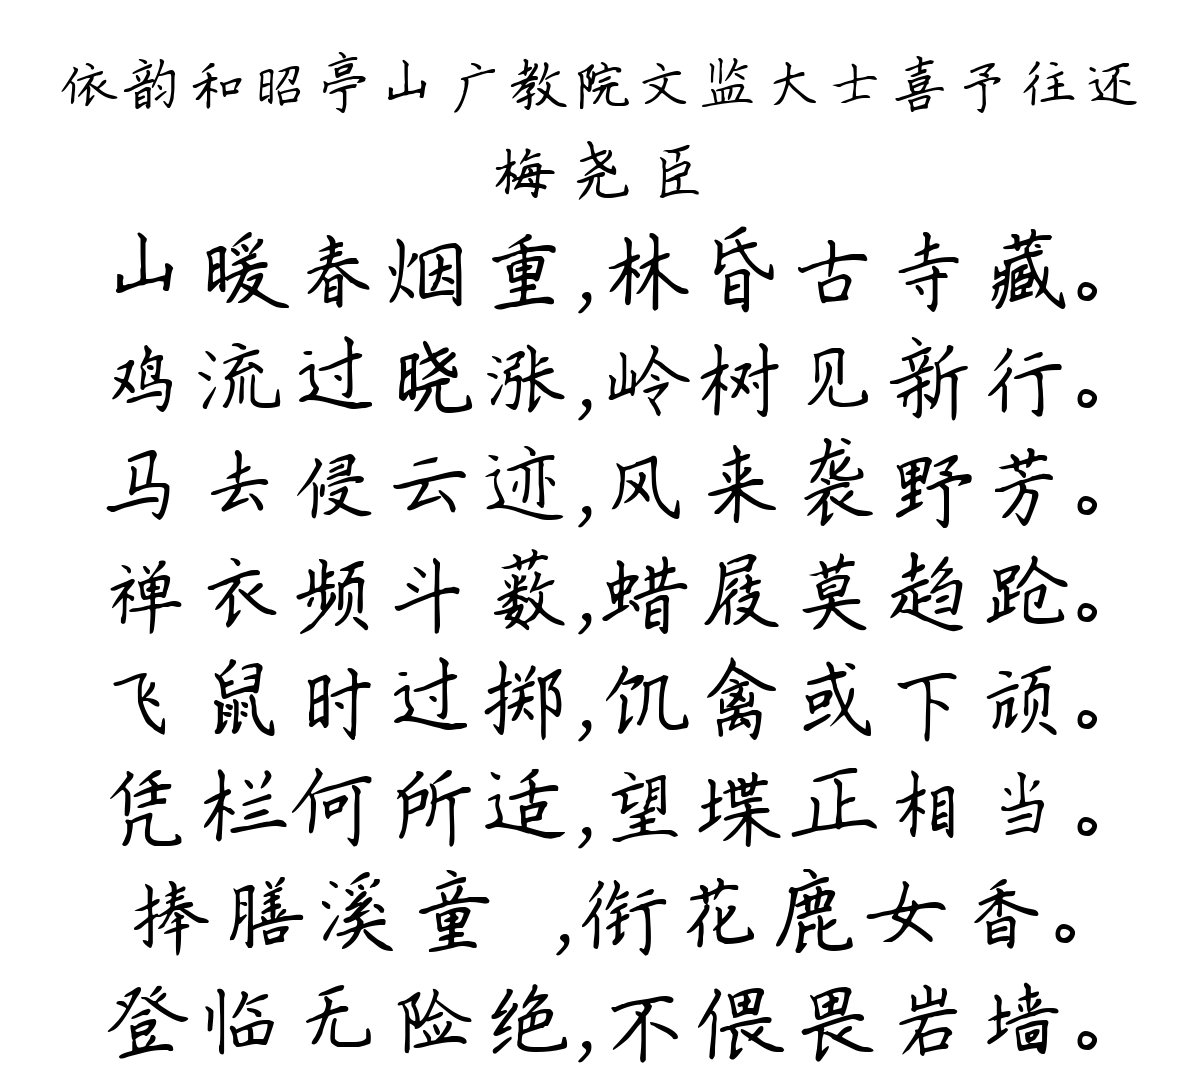 依韵和昭亭山广教院文监大士喜予往还
梅尧臣
山暖春烟重,林昏古寺藏。
鸡流过晓涨,岭树见新行。
马去侵云迹,风来袭野芳。
禅衣频斗薮,蜡屐莫趋跄。
飞鼠时过掷,饥禽或下颃。
凭栏何所适,望堞正相当。
捧膳溪童 ,衔花鹿女香。
登临无险绝,不偎畏岩墙。